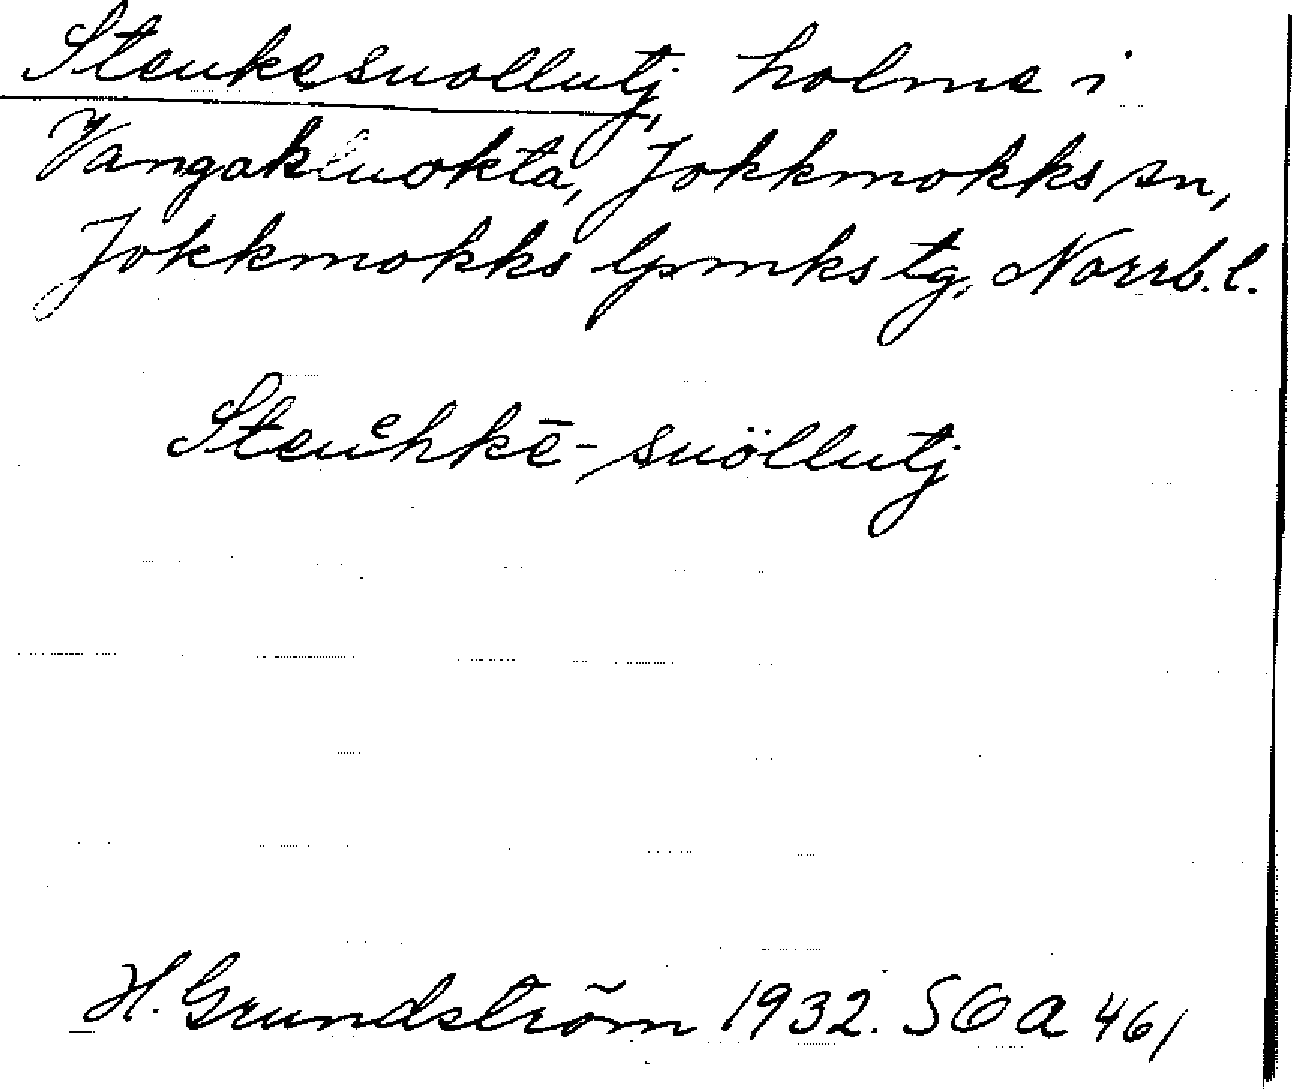 Steukesuollutj, holme i
Vangakluokta, Jokkmokks sn,
Jokkmokks lpmks tg, Norrb. l.
Steuᵉhkē-suöllutj
H. Grundström 1932. SOA 461